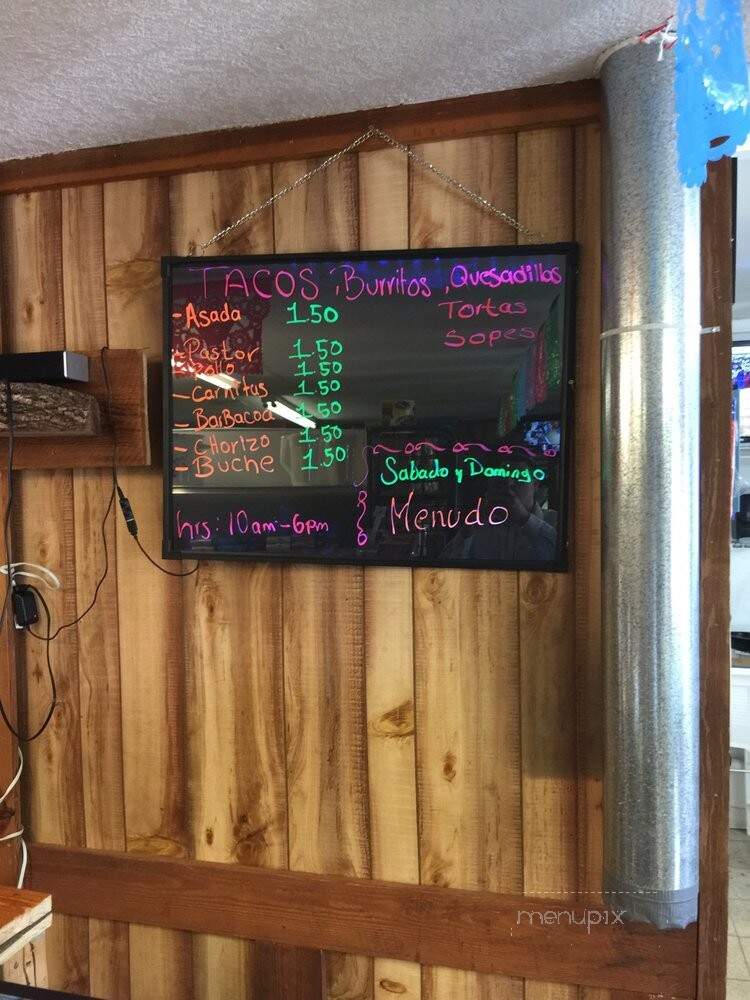 TACOS, Burritos, Quesadillas
Tortas
Sopes
- Asada 1.50
- Pastor 1.50
- Pollo 1.50
- Carnitas 1.50
- BarBacoa 1.50
- CHorizo 1.50
- Buche 1.50
Sabado y Domingo
Menudo
hrs: 10am-6pm
menupix